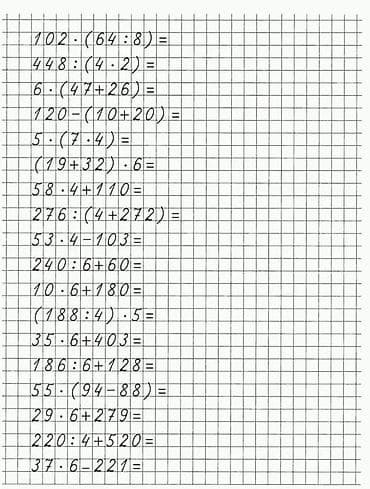 102·(64:8)=
448:(4·2)=
6·(47+26)=
120-(10+20)=
5·(7·4)=
(19+32)·6=
58·4+110=
276:(4+272)=
53·4-103=
240:6+60=
10·6+180=
(188:4)·5=
35·6+403=
186:6+128=
55·(94-88)=
29·6+279=
220:4+520=
37·6-221=